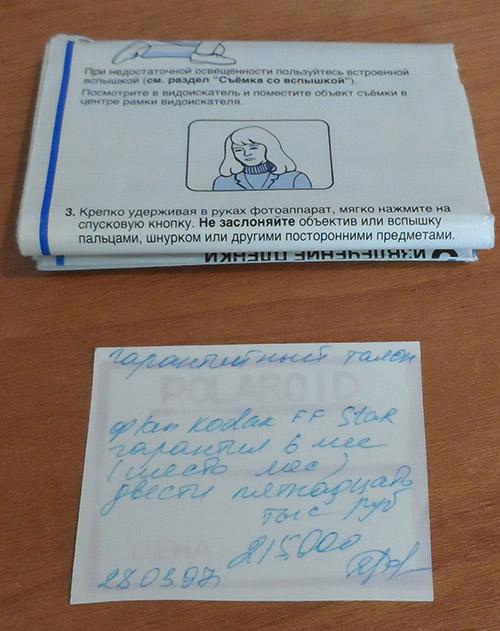 При недостаточной освещенности пользуйтесь встроенной
вспышкой (см. раздел "Съёмка со вспышкой").
Посмотрите в видоискатель и поместите объект съёмки в
центре рамки видоискателя.
3. Крепко удерживая в руках фотоаппарат, мягко нажмите на
спусковую кнопку. Не заслоняйте объектив или вспышку
пальцами, шнурком или другими посторонними предметами.
ИЗВЛЕЧЕНИЕ ПЛЕНКИ
гарантийный талон
POLAROID
ф/ап Kodak FF Star
гарантия 6 мес
(шесть мес)
двести пятнадцать
тыс руб
ЦЕНА
215000
28.03.97